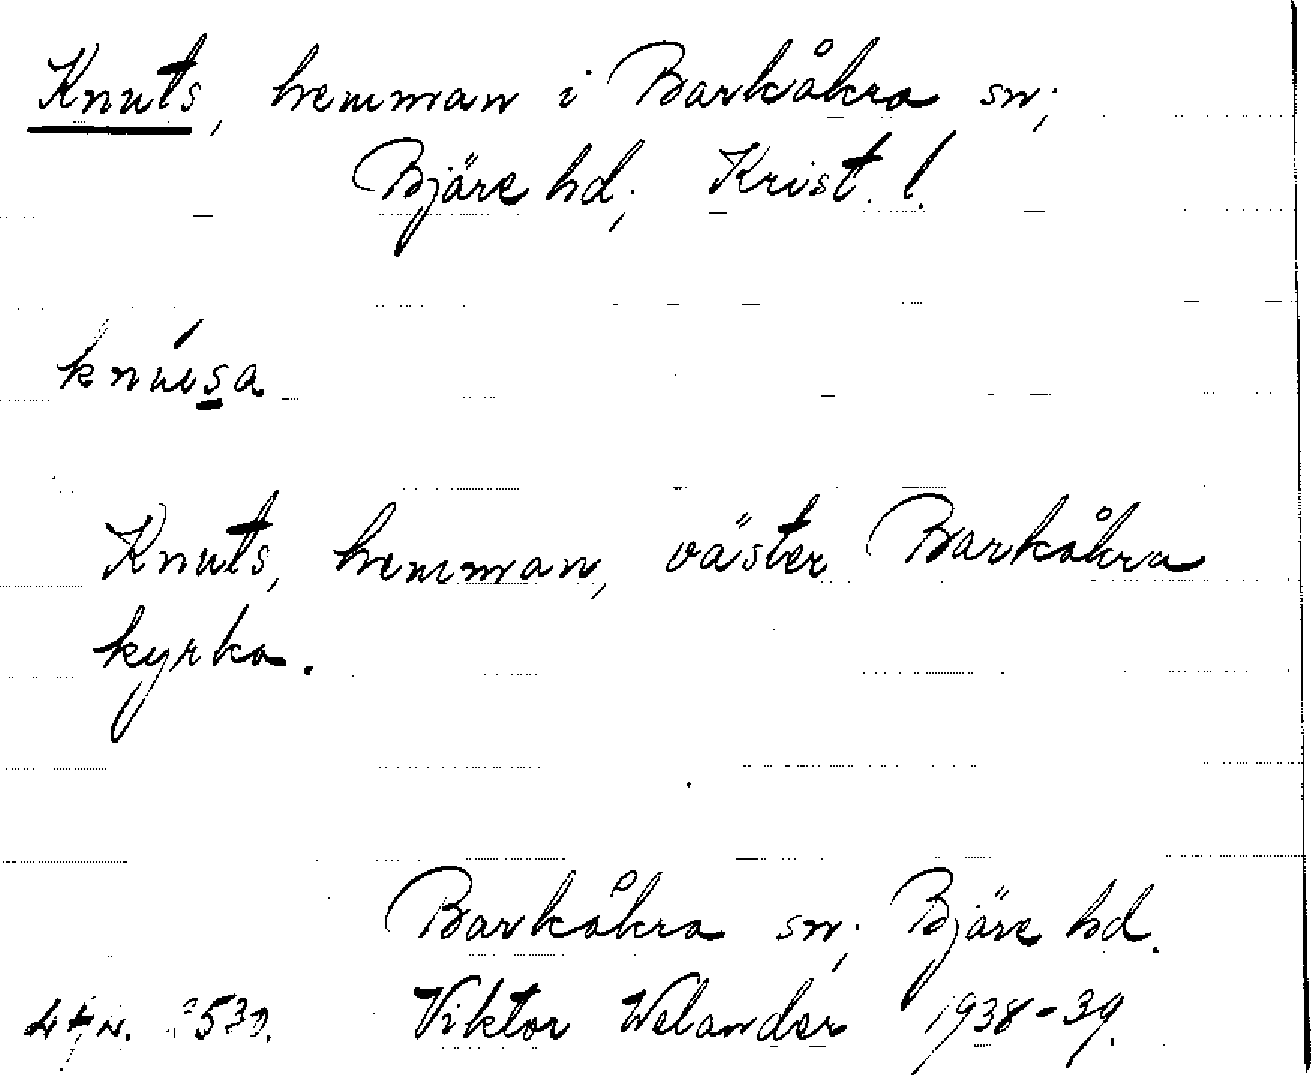 Knuts, hemman i Barkåkra sn;
Bjäre hd; Krist. l.
Knuts, hemman, väster Barkåkra
kyrka.
Barkåkra sn; Bjäre hd.
Viktor Welander 1938-39.